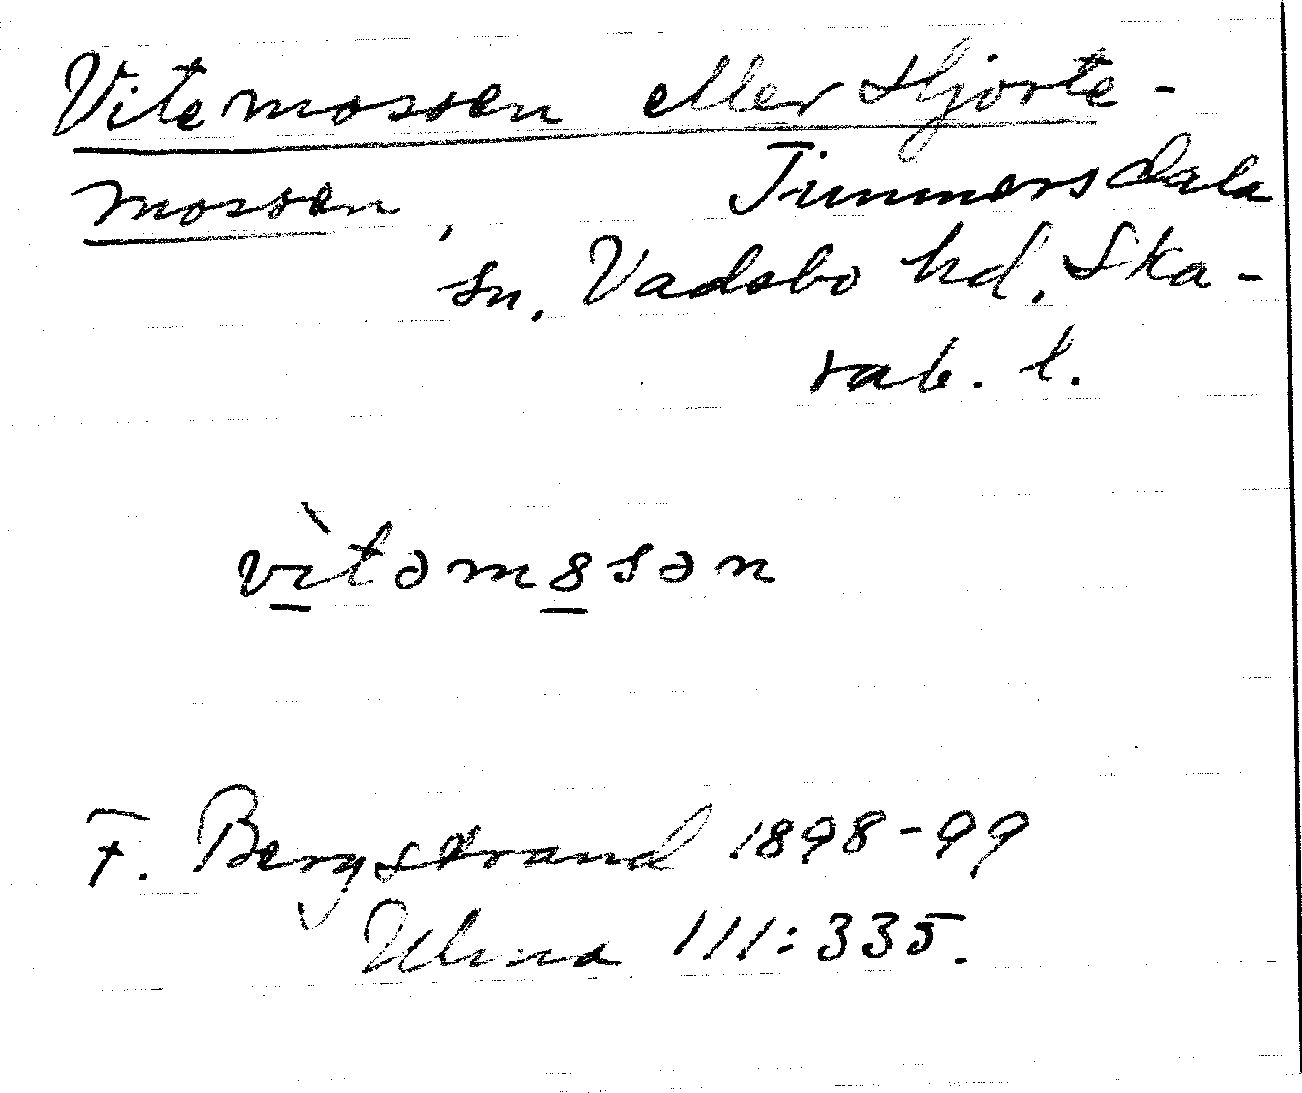 Vitemossen eller Hjorte-
mossen, Timmersdala
sn, Vadsbo hd, Ska-
rab. l.
vìtəm8sən
F. Bergstrand 1898-99
111:335.